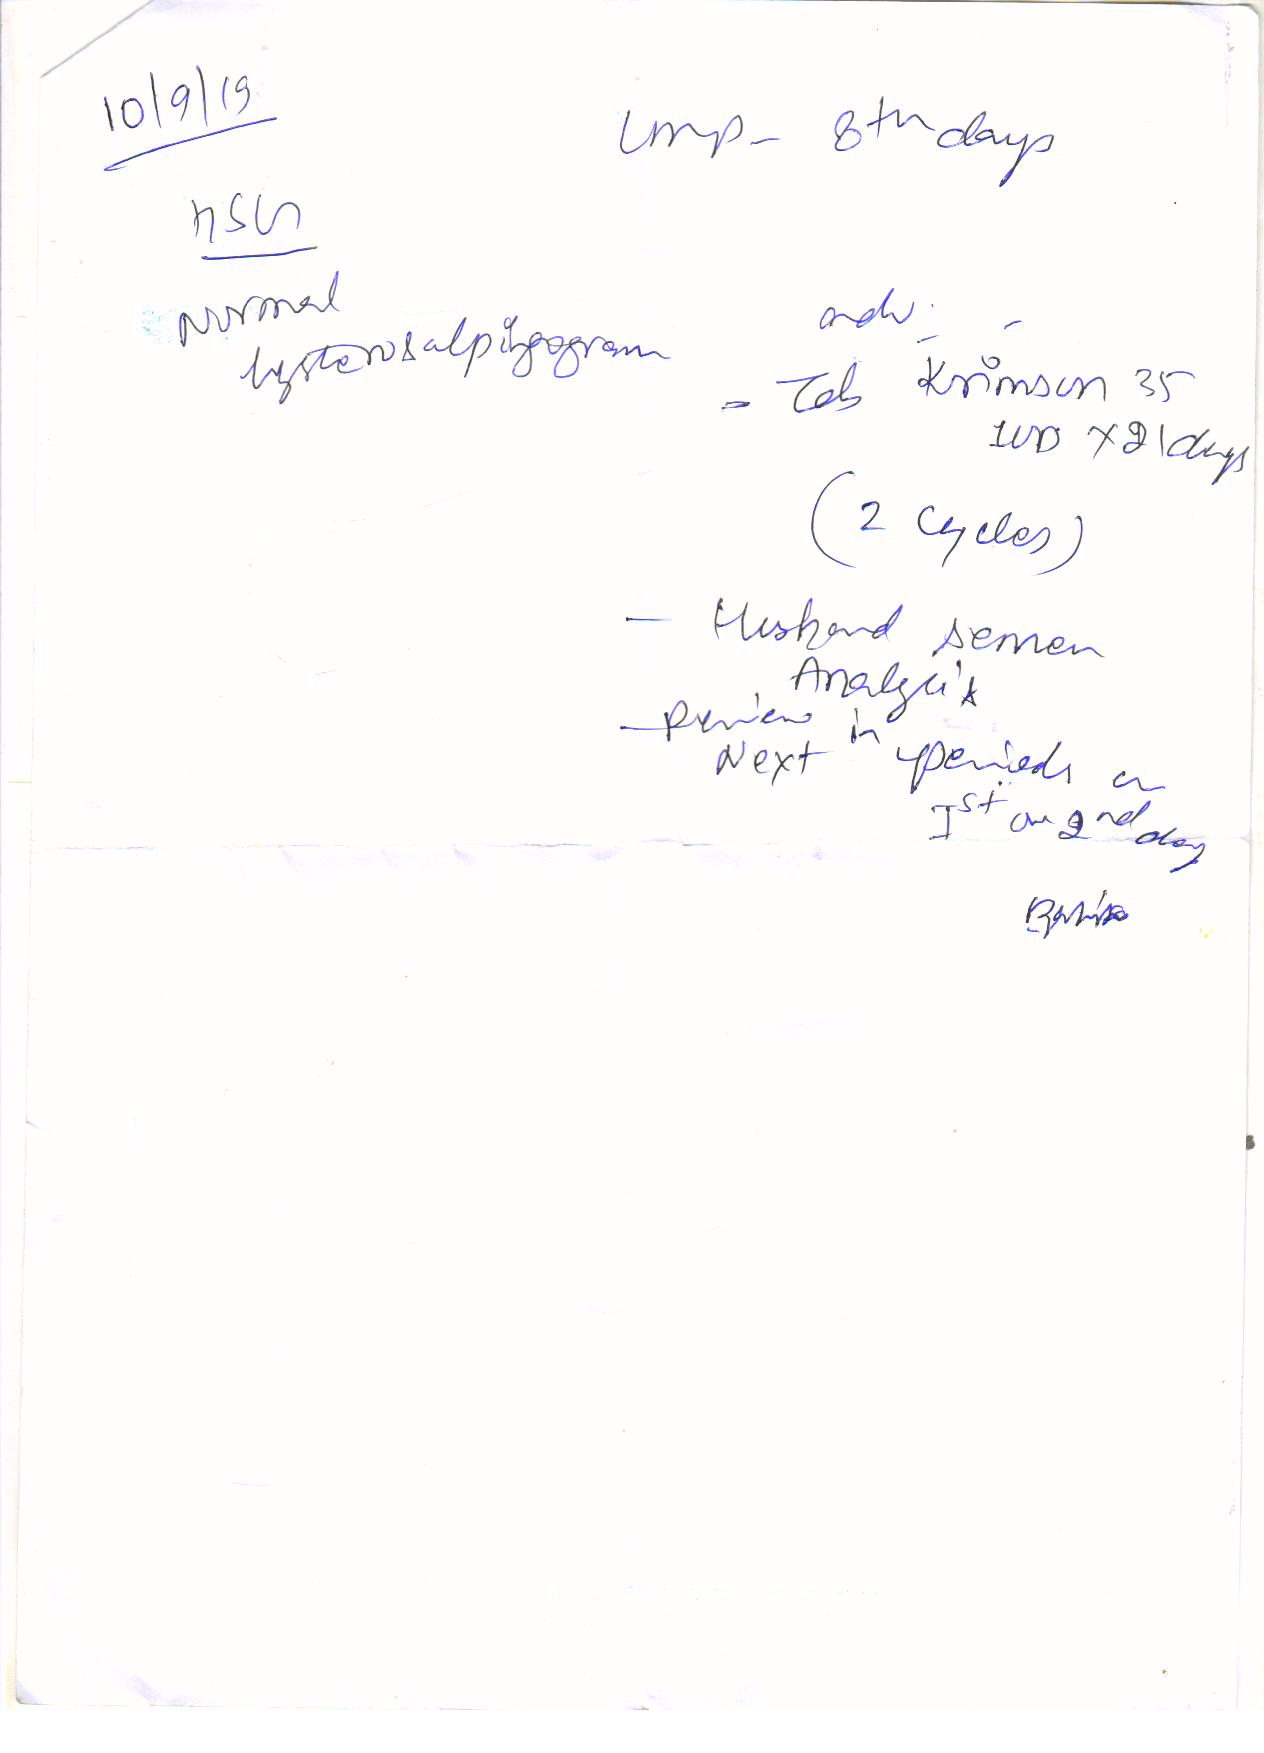 10/9/19
LMP - 8th days
HSG
Normal
hysterosalpingogram
adv: -
- Tab Krimson 35
1OD x 21 days
(2 cycles)
- Husband semen
Analysis
- Review in
Next periods on
Ist or 2nd day